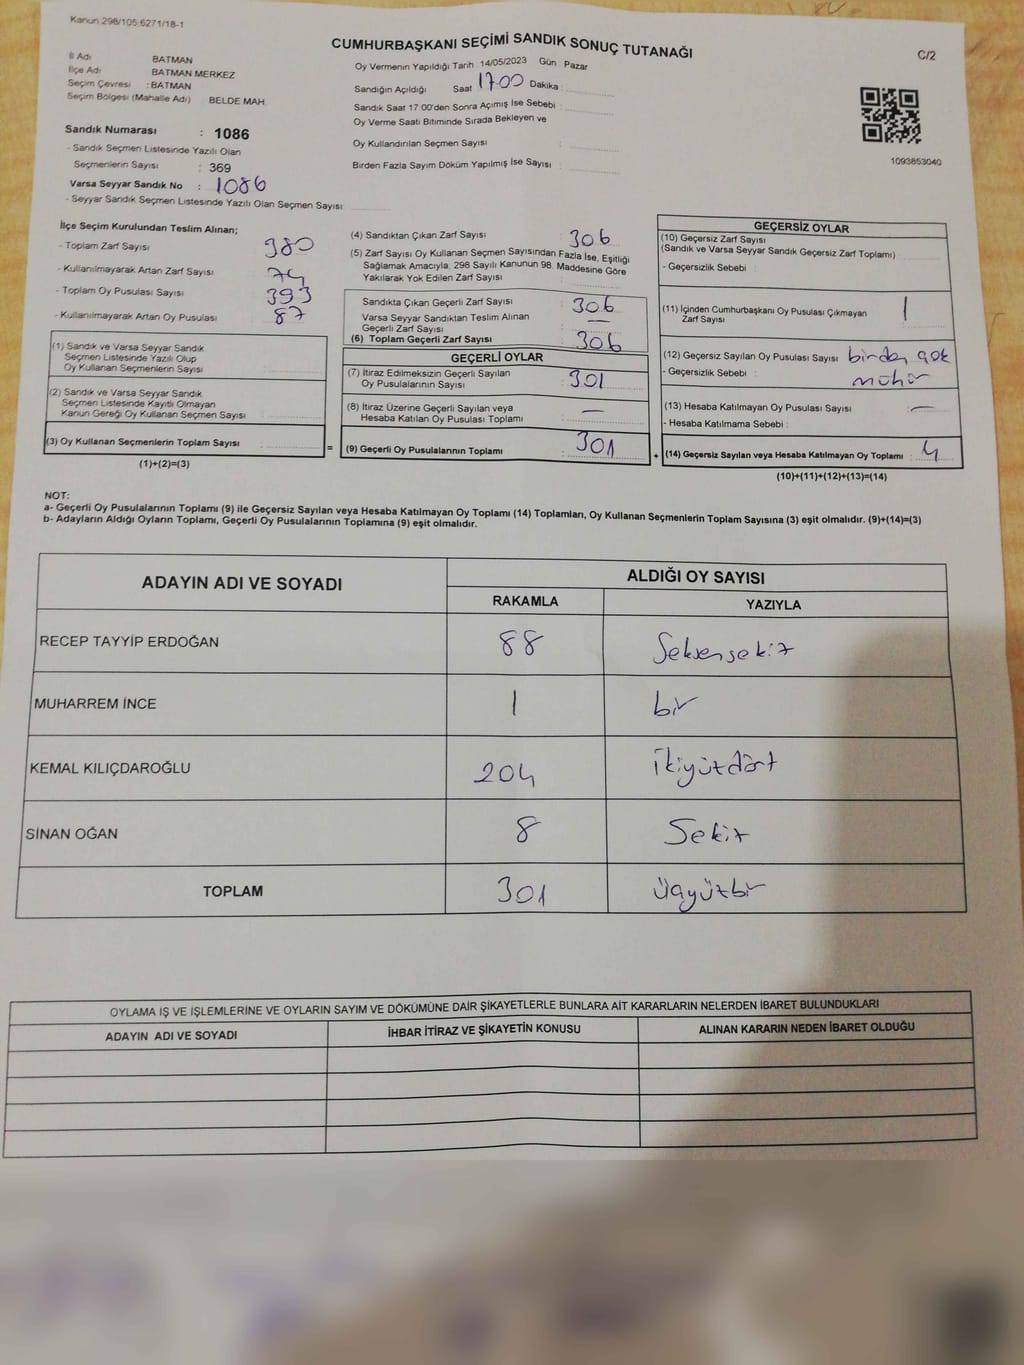 Kanun 298/105.6271/18-1
CUMHURBAŞKANI SEÇİMİ SANDIK SONUÇ TUTANAĞI
C/2
İl Adı BATMAN
İlçe Adı BATMAN MERKEZ
Seçim Çevresi : BATMAN
Seçim Bölgesi (Mahalle Adı) BELDE MAH.
Sandık Numarası : 1086
- Sandık Seçmen Listesinde Yazılı Olan
Seçmenlerin Sayısı : 369
Varsa Seyyar Sandık No : 1086
- Seyyar Sandık Seçmen Listesinde Yazılı Olan Seçmen Sayısı:
Oy Vermenin Yapıldığı Tarih : 14/05/2023 Gün : Pazar
Sandığın Açıldığı Saat 17.00 Dakika :
Sandık Saat 17.00'den Sonra Açımış İse Sebebi :
Oy Verme Saati Bitiminde Sırada Bekleyen ve
Oy Kullandırılan Seçmen Sayısı :
Birden Fazla Sayım Döküm Yapılmış İse Sayısı :
1093853040
İlçe Seçim Kurulundan Teslim Alınan;
- Toplam Zarf Sayısı 380
- Kullanılmayarak Artan Zarf Sayısı : 74
- Toplam Oy Pusulası Sayısı : 393
- Kullanılmayarak Artan Oy Pusulası : 87
(1) Sandık ve Varsa Seyyar Sandık
Seçmen Listesinde Yazılı Olup
Oy Kullanan Seçmenlerin Sayısı :
(2) Sandık ve Varsa Seyyar Sandık
Seçmen Listesinde Kayıtlı Olmayan
Kanun Gereği Oy Kullanan Seçmen Sayısı :
(3) Oy Kullanan Seçmenlerin Toplam Sayısı :
=
(1)+(2)=(3)
(4) Sandıktan Çıkan Zarf Sayısı : 306
(5) Zarf Sayısı Oy Kullanan Seçmen Sayısından Fazla İse, Eşitliği
Sağlamak Amacıyla, 298 Sayılı Kanunun 98. Maddesine Göre
Yakılarak Yok Edilen Zarf Sayısı :
Sandıkta Çıkan Geçerli Zarf Sayısı : 306
Varsa Seyyar Sandıktan Teslim Alınan
Geçerli Zarf Sayısı : —
(6) Toplam Geçerli Zarf Sayısı : 306
GEÇERLİ OYLAR
(7) İtiraz Edilmeksizin Geçerli Sayılan
Oy Pusulalarının Sayısı : 301
(8) İtiraz Üzerine Geçerli Sayılan veya
Hesaba Katılan Oy Pusulası Toplamı : —
(9) Geçerli Oy Pusulalarının Toplamı : 301
+
GEÇERSİZ OYLAR
(10) Geçersiz Zarf Sayısı
(Sandık ve Varsa Seyyar Sandık Geçersiz Zarf Toplamı) :
- Geçersizlik Sebebi :
(11) İçinden Cumhurbaşkanı Oy Pusulası Çıkmayan
Zarf Sayısı : 1
(12) Geçersiz Sayılan Oy Pusulası Sayısı : birden çok
- Geçersizlik Sebebi : mühür
(13) Hesaba Katılmayan Oy Pusulası Sayısı : —
- Hesaba Katılmama Sebebi :
(14) Geçersiz Sayılan veya Hesaba Katılmayan Oy Toplamı : 4
(10)+(11)+(12)+(13)=(14)
NOT:
a- Geçerli Oy Pusulalarının Toplamı (9) ile Geçersiz Sayılan veya Hesaba Katılmayan Oy Toplamı (14) Toplamları, Oy Kullanan Seçmenlerin Toplam Sayısına (3) eşit olmalıdır. (9)+(14)=(3)
b- Adayların Aldığı Oyların Toplamı, Geçerli Oy Pusulalarının Toplamına (9) eşit olmalıdır.
ADAYIN ADI VE SOYADI ALDIĞI OY SAYISI
RAKAMLA YAZIYLA
RECEP TAYYİP ERDOĞAN 88 Seksensekiz
MUHARREM İNCE 1 bir
KEMAL KILIÇDAROĞLU 204 ikiyüzdört
SİNAN OĞAN 8 Sekiz
TOPLAM 301 üçyüzbir
OYLAMA İŞ VE İŞLEMLERİNE VE OYLARIN SAYIM VE DÖKÜMÜNE DAİR ŞİKAYETLERLE BUNLARA AİT KARARLARIN NELERDEN İBARET BULUNDUKLARI
ADAYIN ADI VE SOYADI İHBAR İTİRAZ VE ŞİKAYETİN KONUSU ALINAN KARARIN NEDEN İBARET OLDUĞU